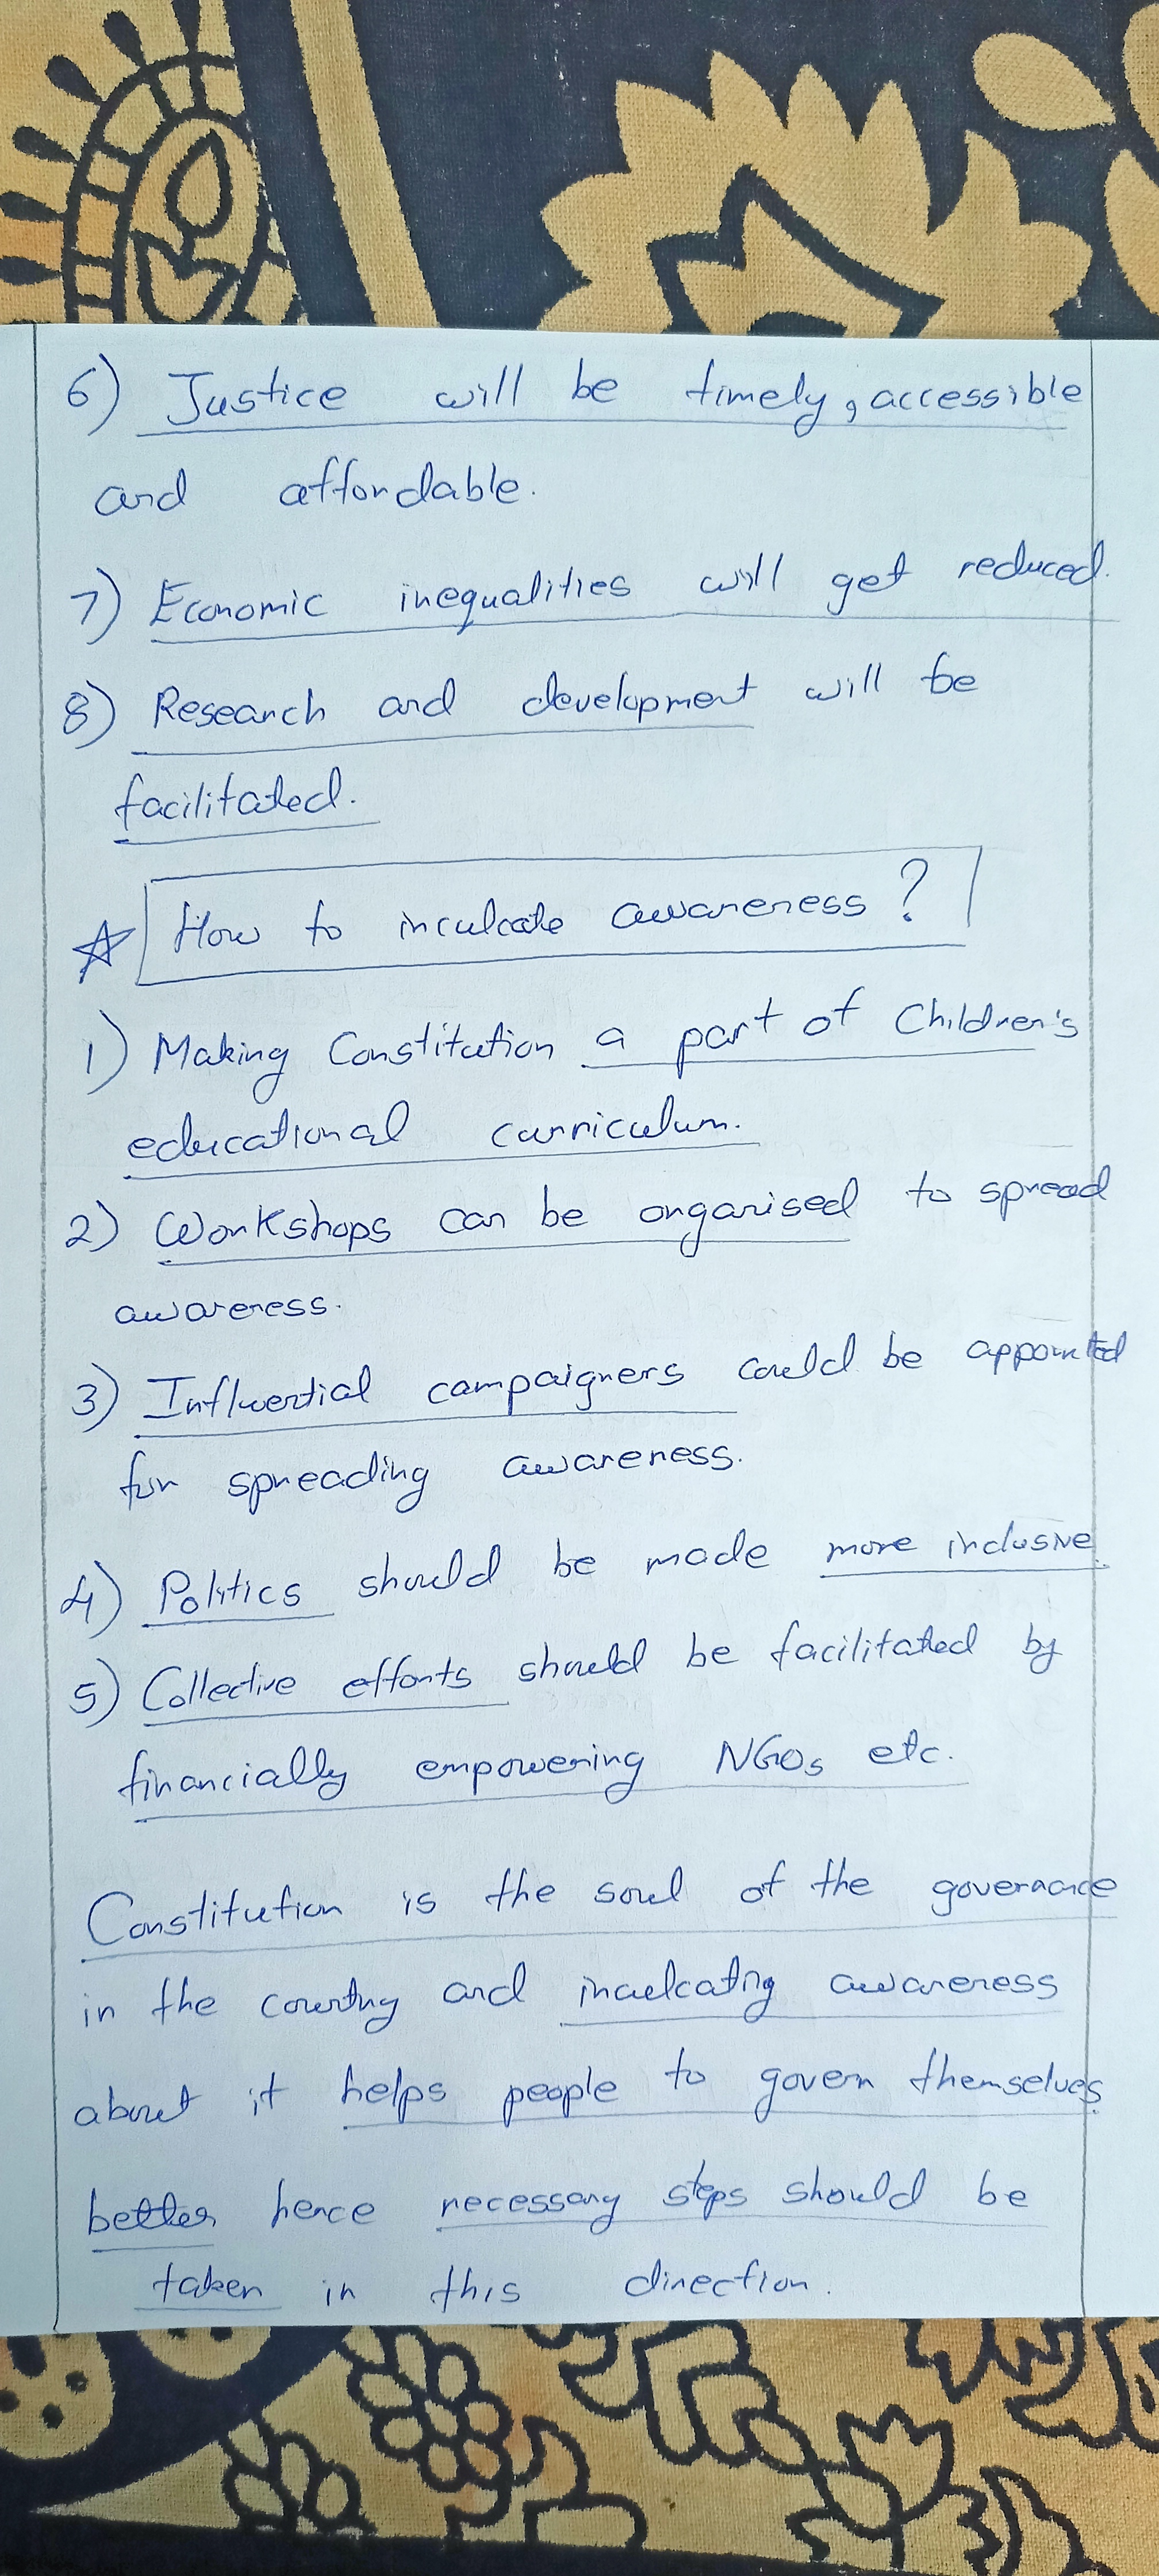 6) Justice will be timely, accessible
and affordable.
7) Economic inequalities will get reduced.
8) Research and development will be
facilitated.
☆ How to inculcate awareness?
1) Making Constitution a part of Children's
educational curriculum.
2) Workshops can be organised to spread
awareness.
3) Influential campaigners could be appointed
for spreading awareness.
4) Politics should be made more inclusive.
5) Collective efforts should be facilitated by
financially empowering NGOs etc.
Constitution is the soul of the governance
in the country and inculcating awareness
about it helps people to govern themselves
better hence necessary steps should be
taken in this direction.